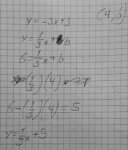 y=-3x+3 (4,6)
y=1/3x+b
6=1/3x+b
(1/3)(4)
6-(1/3)(4)=5
y=1/3x+5